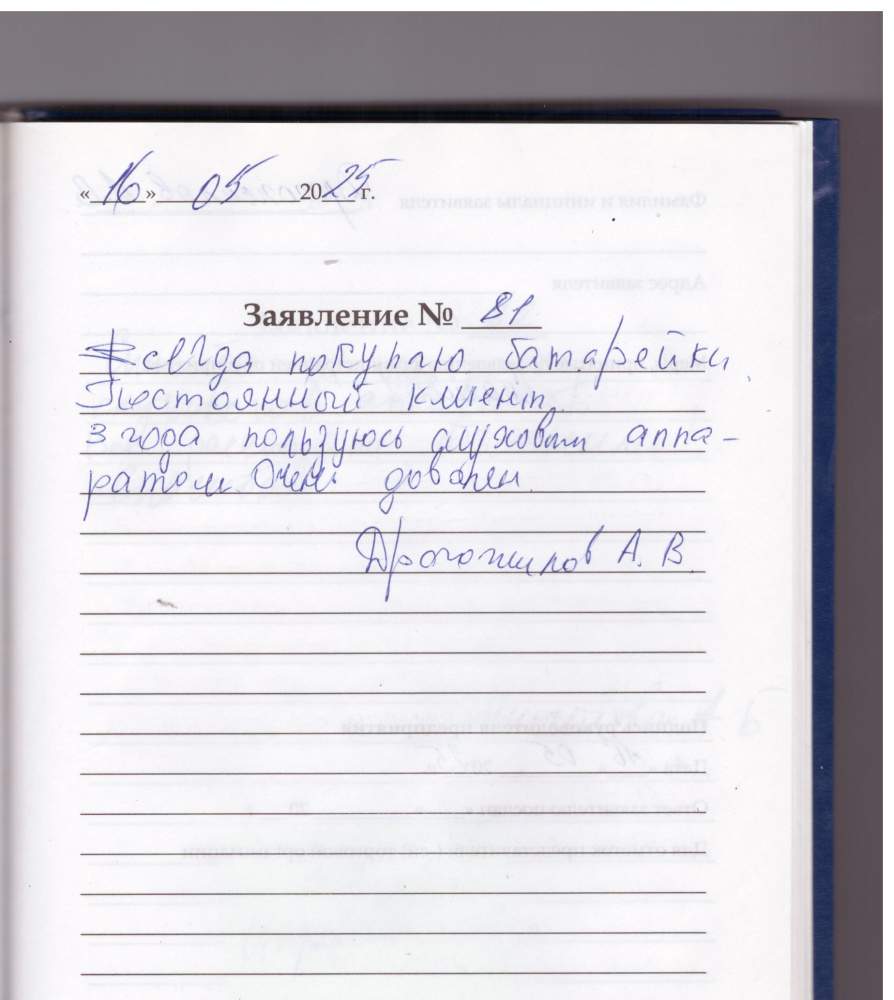 «16» 05 2025 г.
Заявление № 81
Всегда покупаю батарейки
Постоянный клиент
3 года пользуюсь слуховым аппа-
ратом. Очень доволен.
А. В.